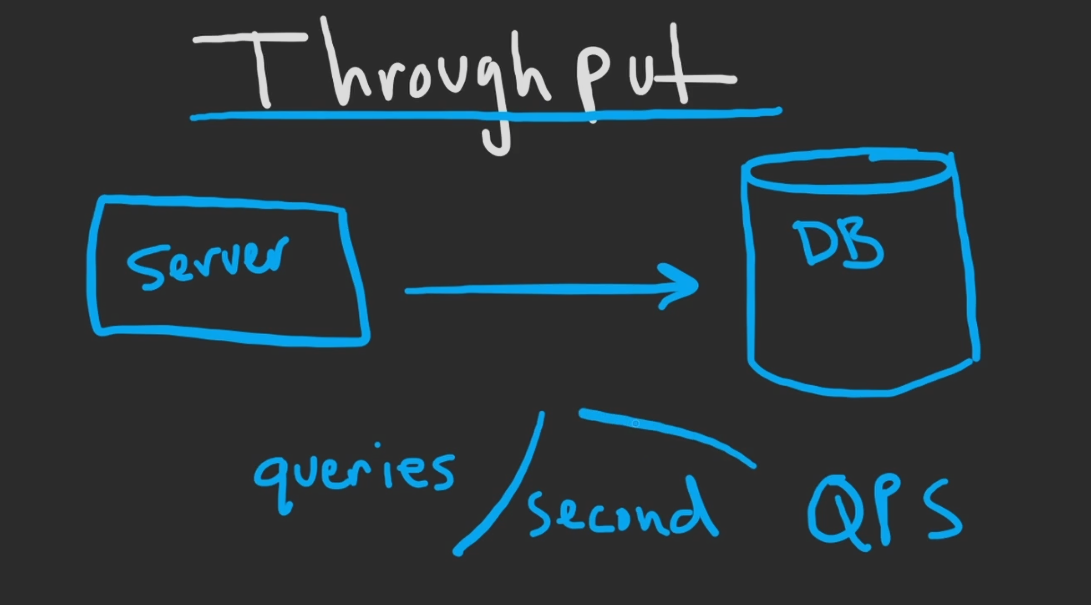 Throughput
server
DB
queries / second
QPS